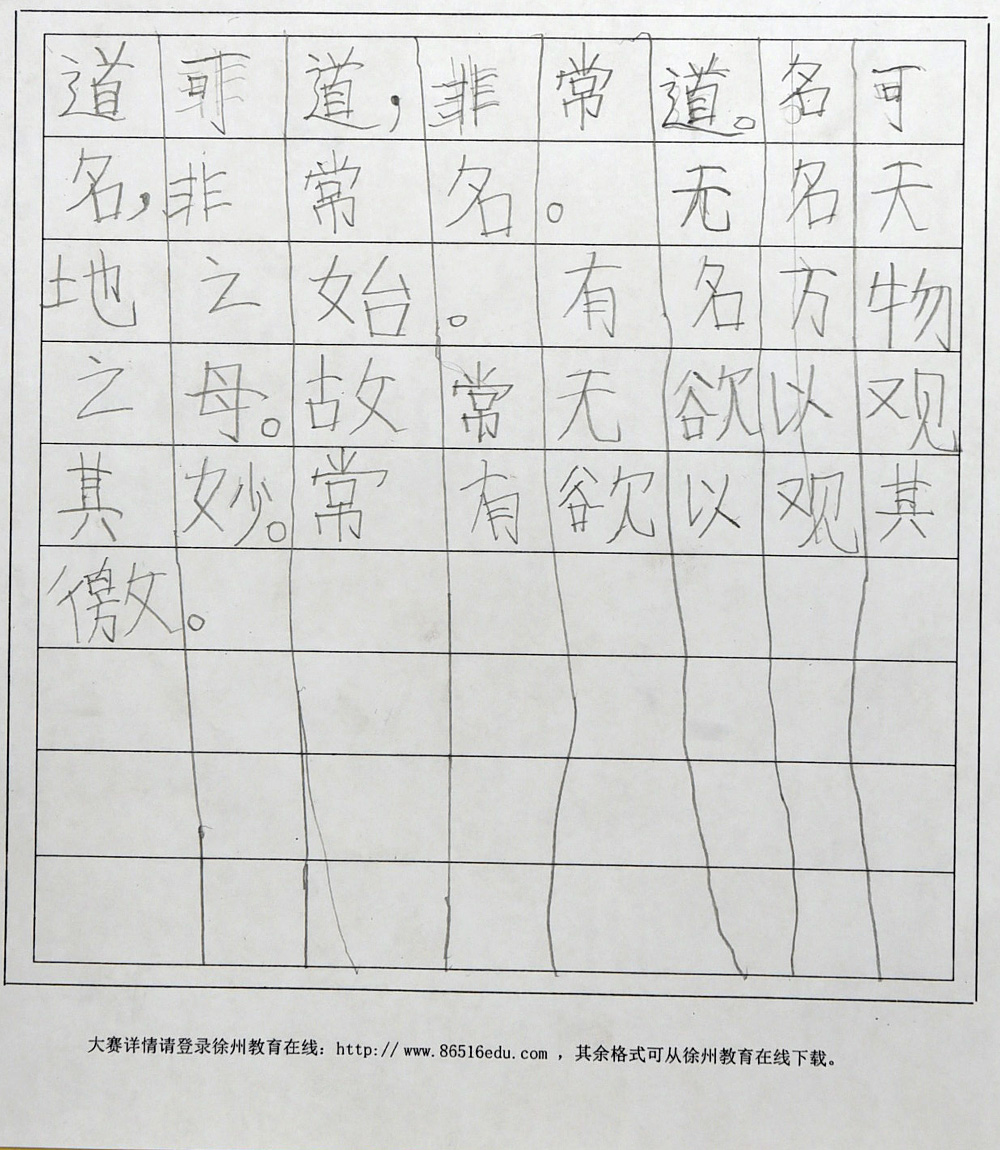 道可道，非常道。名可
名，非常名。无名天
地之始。有名万物
之母。故常无欲以观
其妙。常有欲以观其
徼。
大赛详情请登录徐州教育在线：http://www.86516edu.com，其余格式可从徐州教育在线下载。